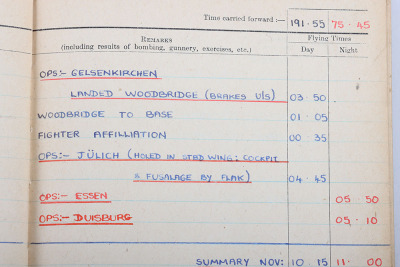 Time carried forward :— 191·55 75·45
REMARKS
(including results of bombing, gunnery, exercises, etc.)
Flying Times
Day Night
OPS:- GELSENKIRCHEN
LANDED WOODBRIDGE (BRAKES U/S) 03 50
WOODBRIDGE TO BASE 01·05
FIGHTER AFFILLIATION 00 35
OPS:- JÜLICH (HOLED IN STBD WING: COCKPIT
& FUSALAGE BY FLAK) 04·45
OPS:- ESSEN 05 50
OPS:- DUISBURG 05·10
SUMMARY NOV: 10 15 11· 00